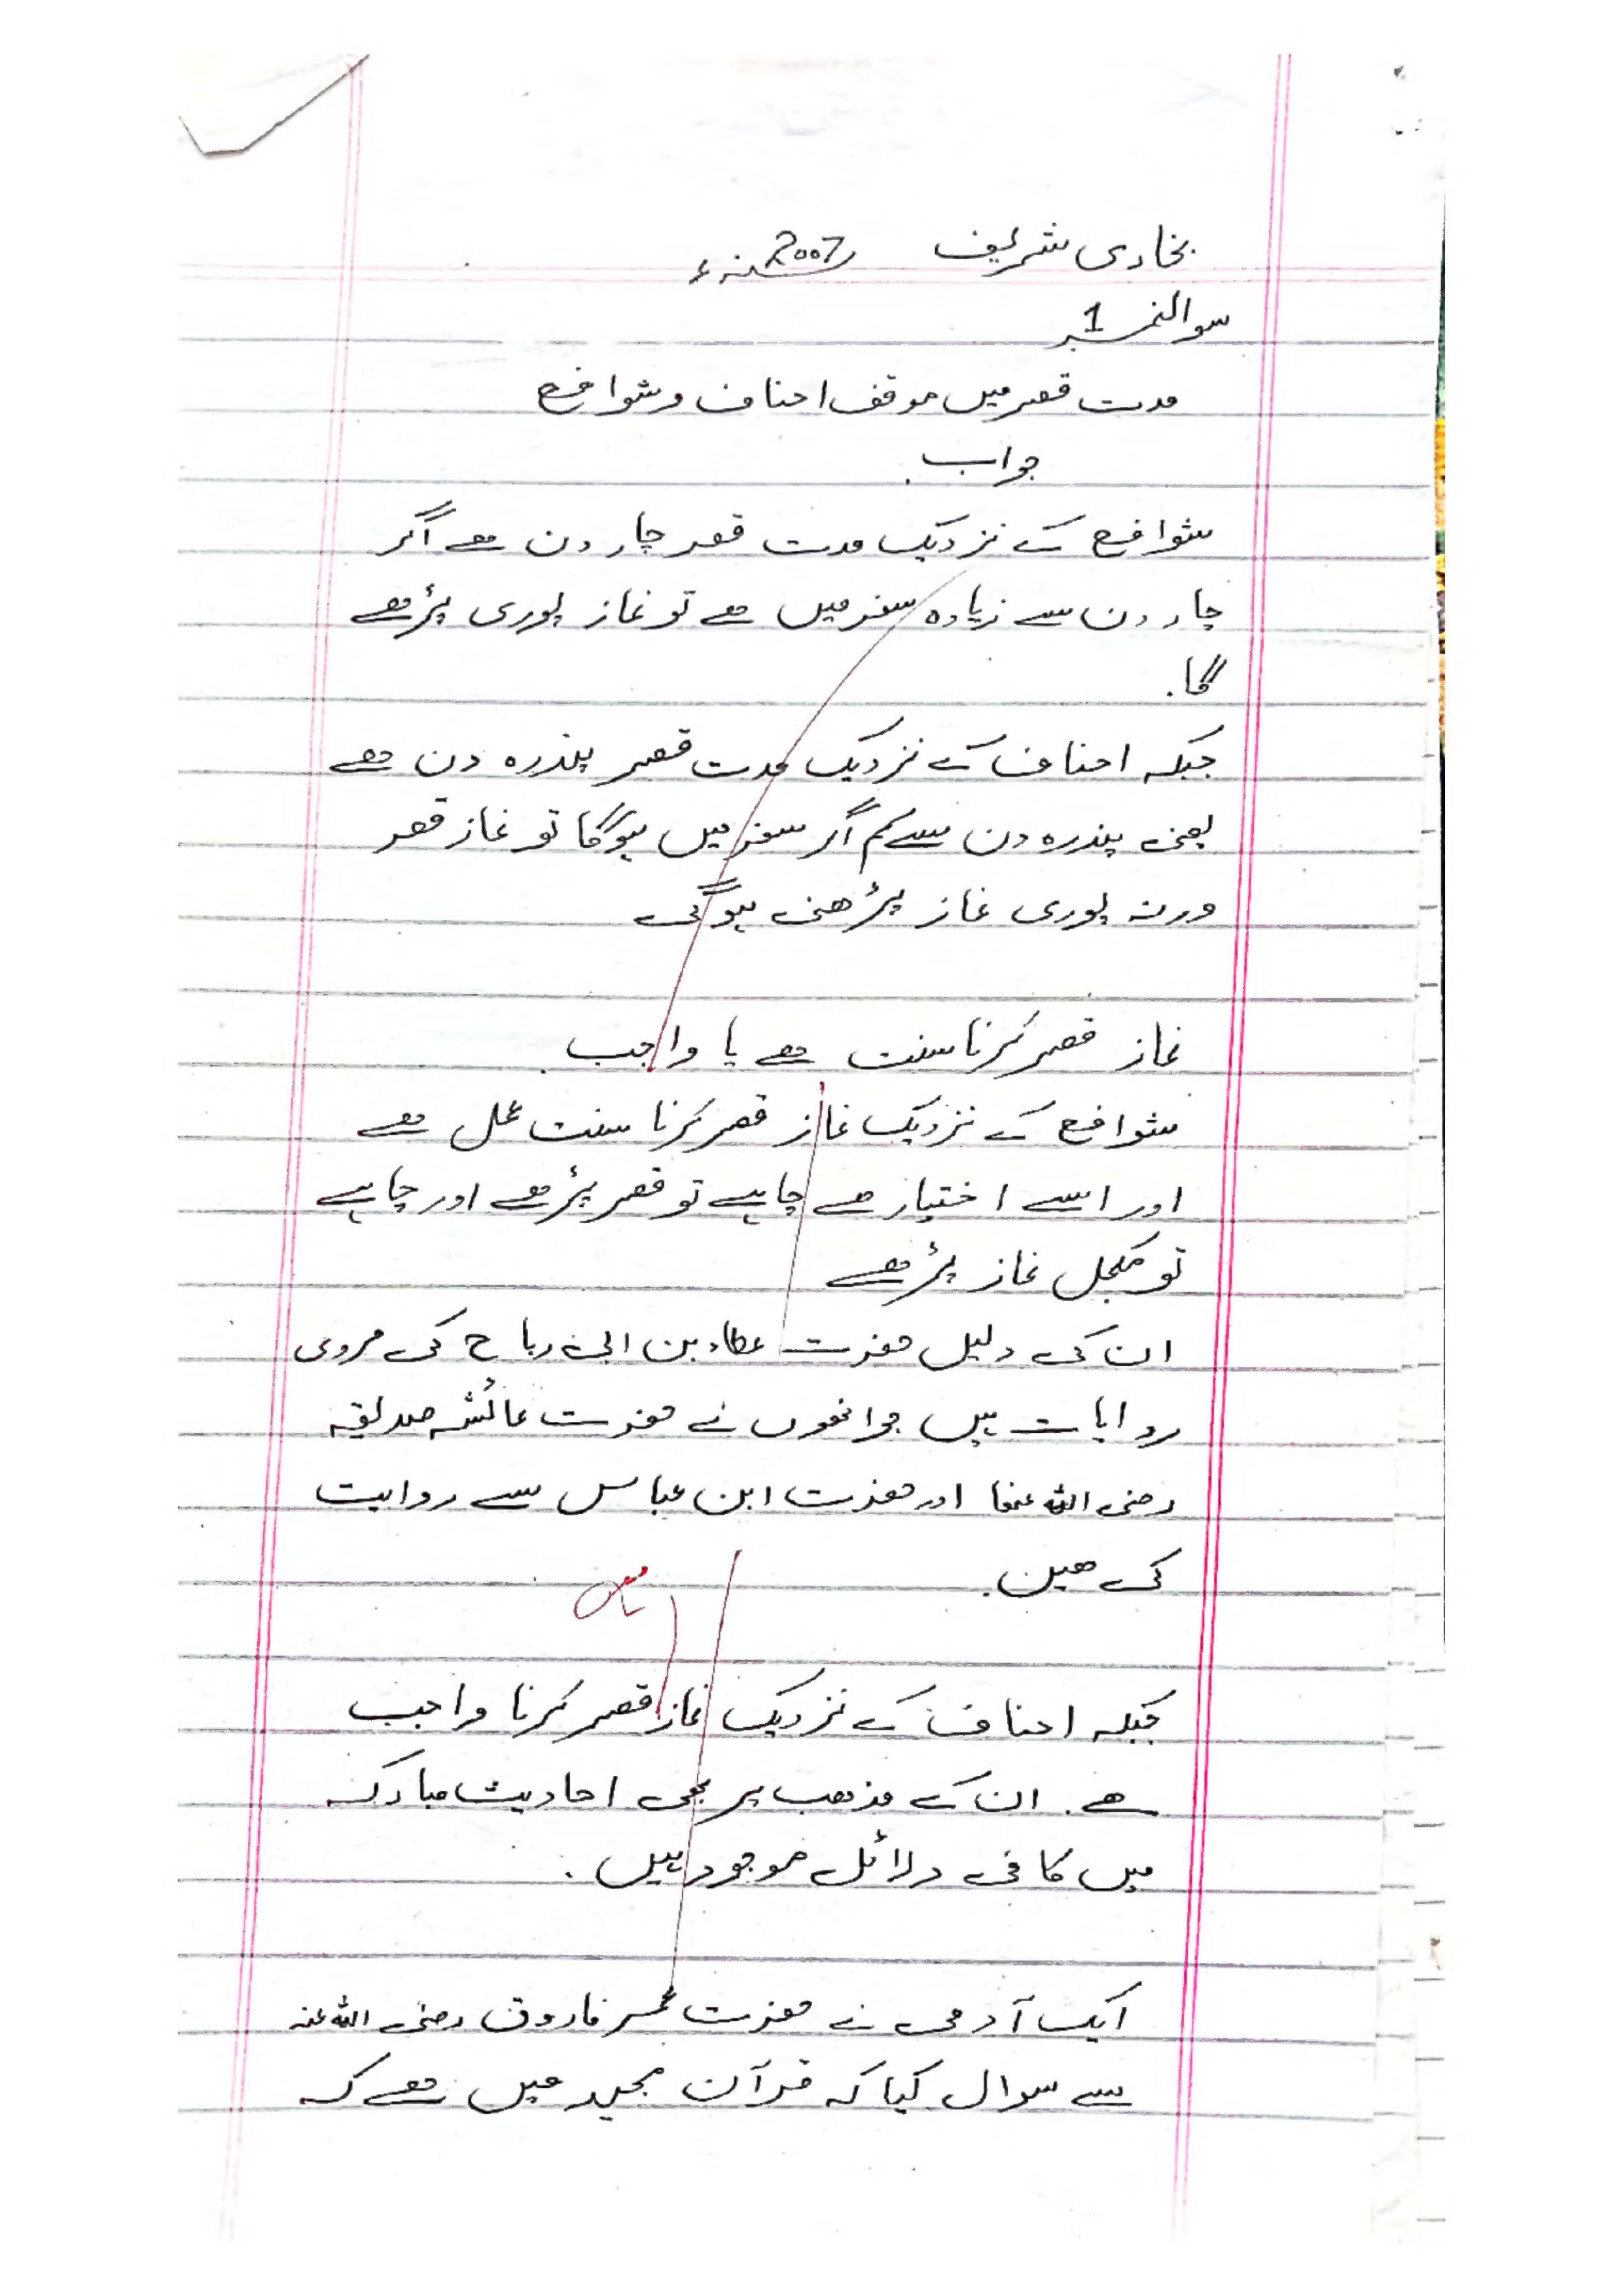 بخاری شریف 2007ء
سوال نمبر 1
مدت قصر میں موقف احناف و شوافع
جواب
شوافع کے نزدیک مدت قصر چار دن ھے اگر
چار دن سے زیادہ سفر میں ھے تو نماز پوری پڑھے
گا.
جبکہ احناف کے نزدیک مدت قصر پندرہ دن ھے
یعنی پندرہ دن سے کم اگر سفر میں ہوگا تو نماز قصر
ورنہ پوری نماز پڑھنی ہوگی
نماز قصر کرنا سنت ھے یا واجب
شوافع کے نزدیک نماز قصر کرنا سنت عمل ھے
اور اسے اختیار ھے چاہے تو قصر پڑھے اور چاہے
تو مکمل نماز پڑھے
ان کی دلیل حضرت عطاء بن ابی رباح کی مروی
روایات ہیں جو انھوں نے حضرت عائشہ صدیقہ
رضی اللہ عنھا اور حضرت ابن عباس سے روایت
کی ھیں.
جبکہ احناف کے نزدیک نماز قصر کرنا واجب
ھے. ان کے مذھب پر بھی احادیث مبارکہ
میں کافی دلائل موجود ہیں.
ایک آدمی نے حضرت عمر فاروق رضی اللہ عنہ
سے سوال کیا کہ قرآن مجید میں ھے کہ